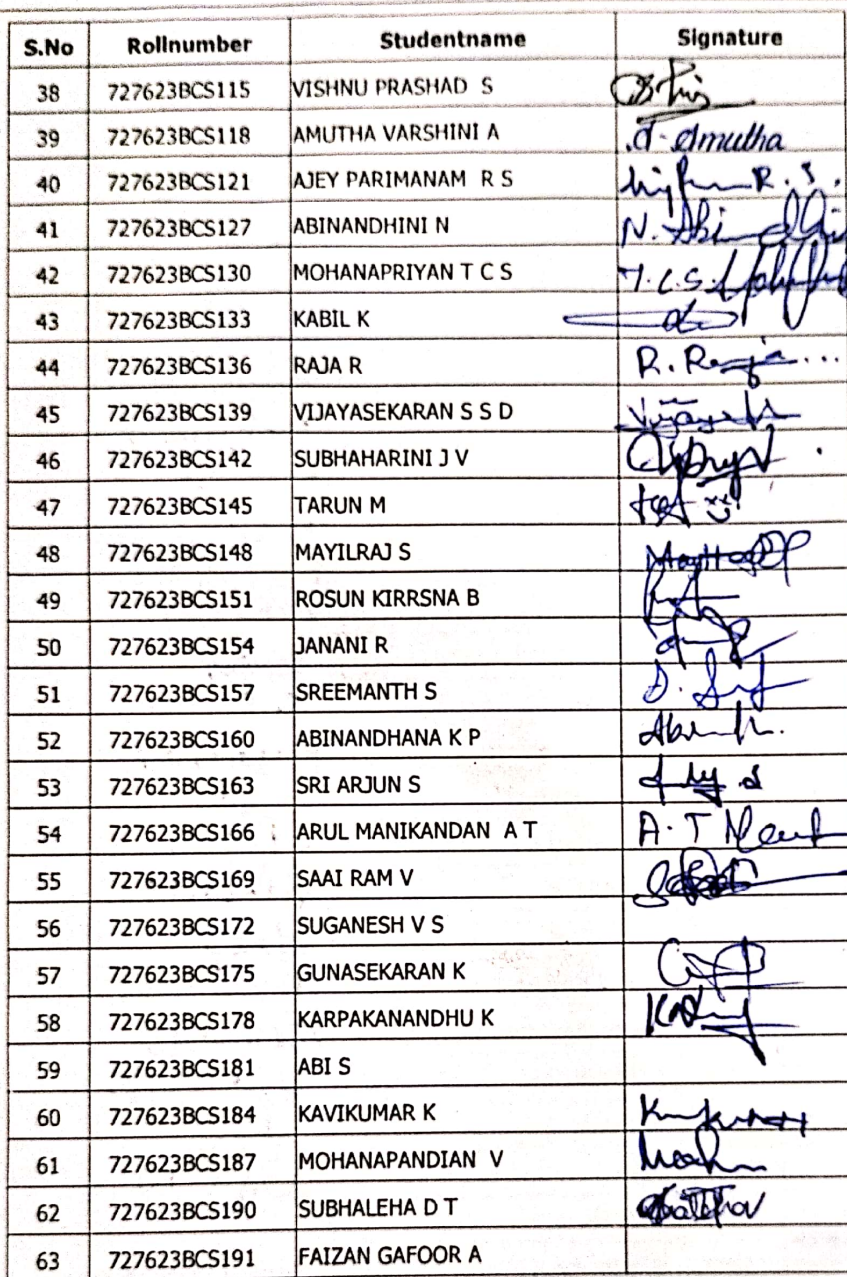 S.No Rollnumber Studentname Signature
38 727623BCS115 VISHNU PRASHAD S
39 727623BCS118 AMUTHA VARSHINI A A-Amutha
40 727623BCS121 AJEY PARIMANAM R S R.S.
41 727623BCS127 ABINANDHINI N N.
42 727623BCS130 MOHANAPRIYAN T C S T.C.S
43 727623BCS133 KABIL K
44 727623BCS136 RAJA R R. Raja...
45 727623BCS139 VIJAYASEKARAN S S D
46 727623BCS142 SUBHAHARINI J V
47 727623BCS145 TARUN M
48 727623BCS148 MAYILRAJ S
49 727623BCS151 ROSUN KIRRSNA B
50 727623BCS154 JANANI R
51 727623BCS157 SREEMANTH S
52 727623BCS160 ABINANDHANA K P
53 727623BCS163 SRI ARJUN S
54 727623BCS166 ARUL MANIKANDAN A T A. T
55 727623BCS169 SAAI RAM V
56 727623BCS172 SUGANESH V S
57 727623BCS175 GUNASEKARAN K
58 727623BCS178 KARPAKANANDHU K
59 727623BCS181 ABI S
60 727623BCS184 KAVIKUMAR K
61 727623BCS187 MOHANAPANDIAN V
62 727623BCS190 SUBHALEHA D T
63 727623BCS191 FAIZAN GAFOOR A